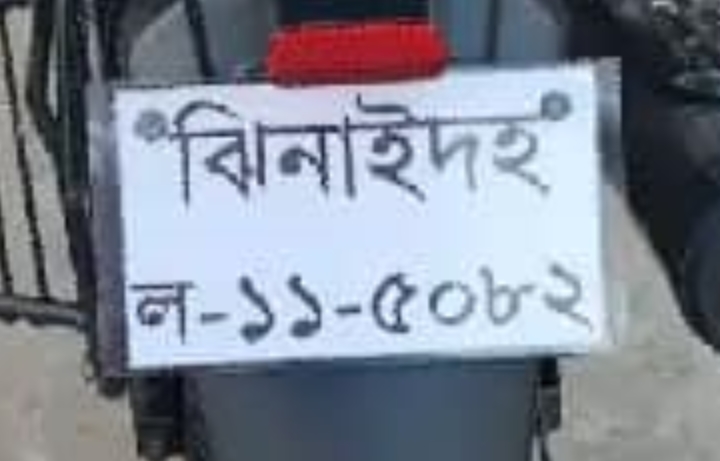 ঝিনাইদহ
ল-১১-৫০৮২